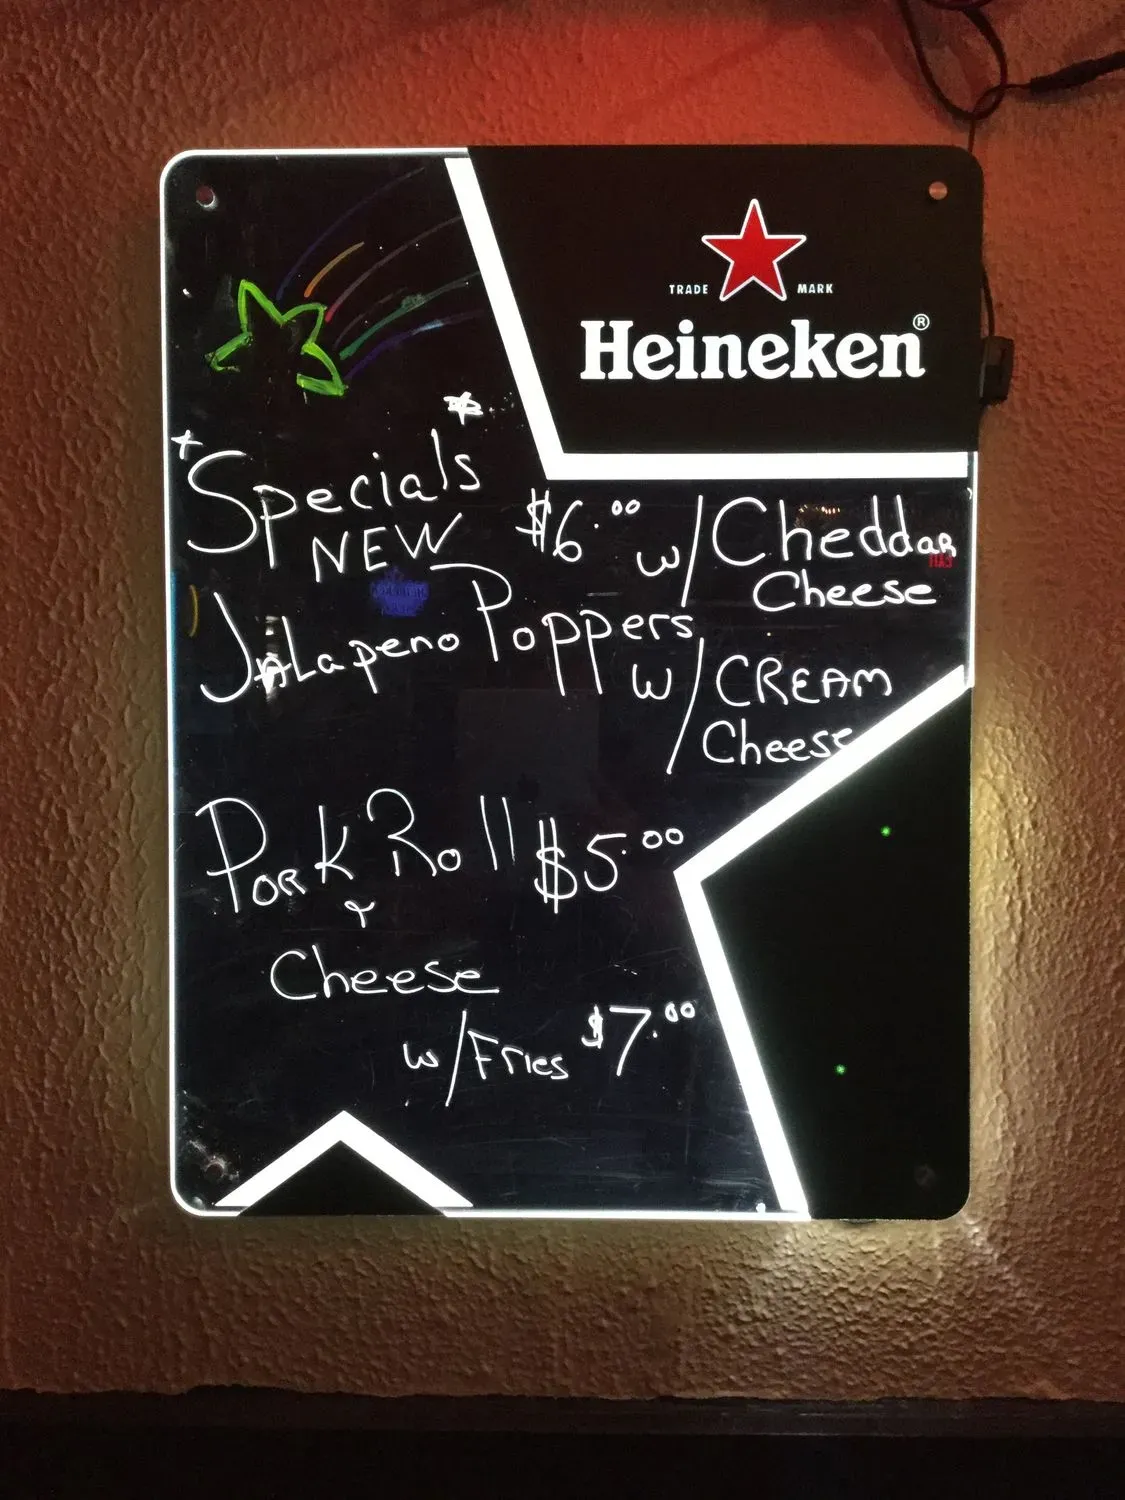 TRADE MARK
Heineken®
*Specials*
NEW $6.00 w/Cheddar
Cheese
Jalapeno Poppers
w/CREAM
Cheese
Pork Roll $5.00
&
Cheese
w/Fries $7.00